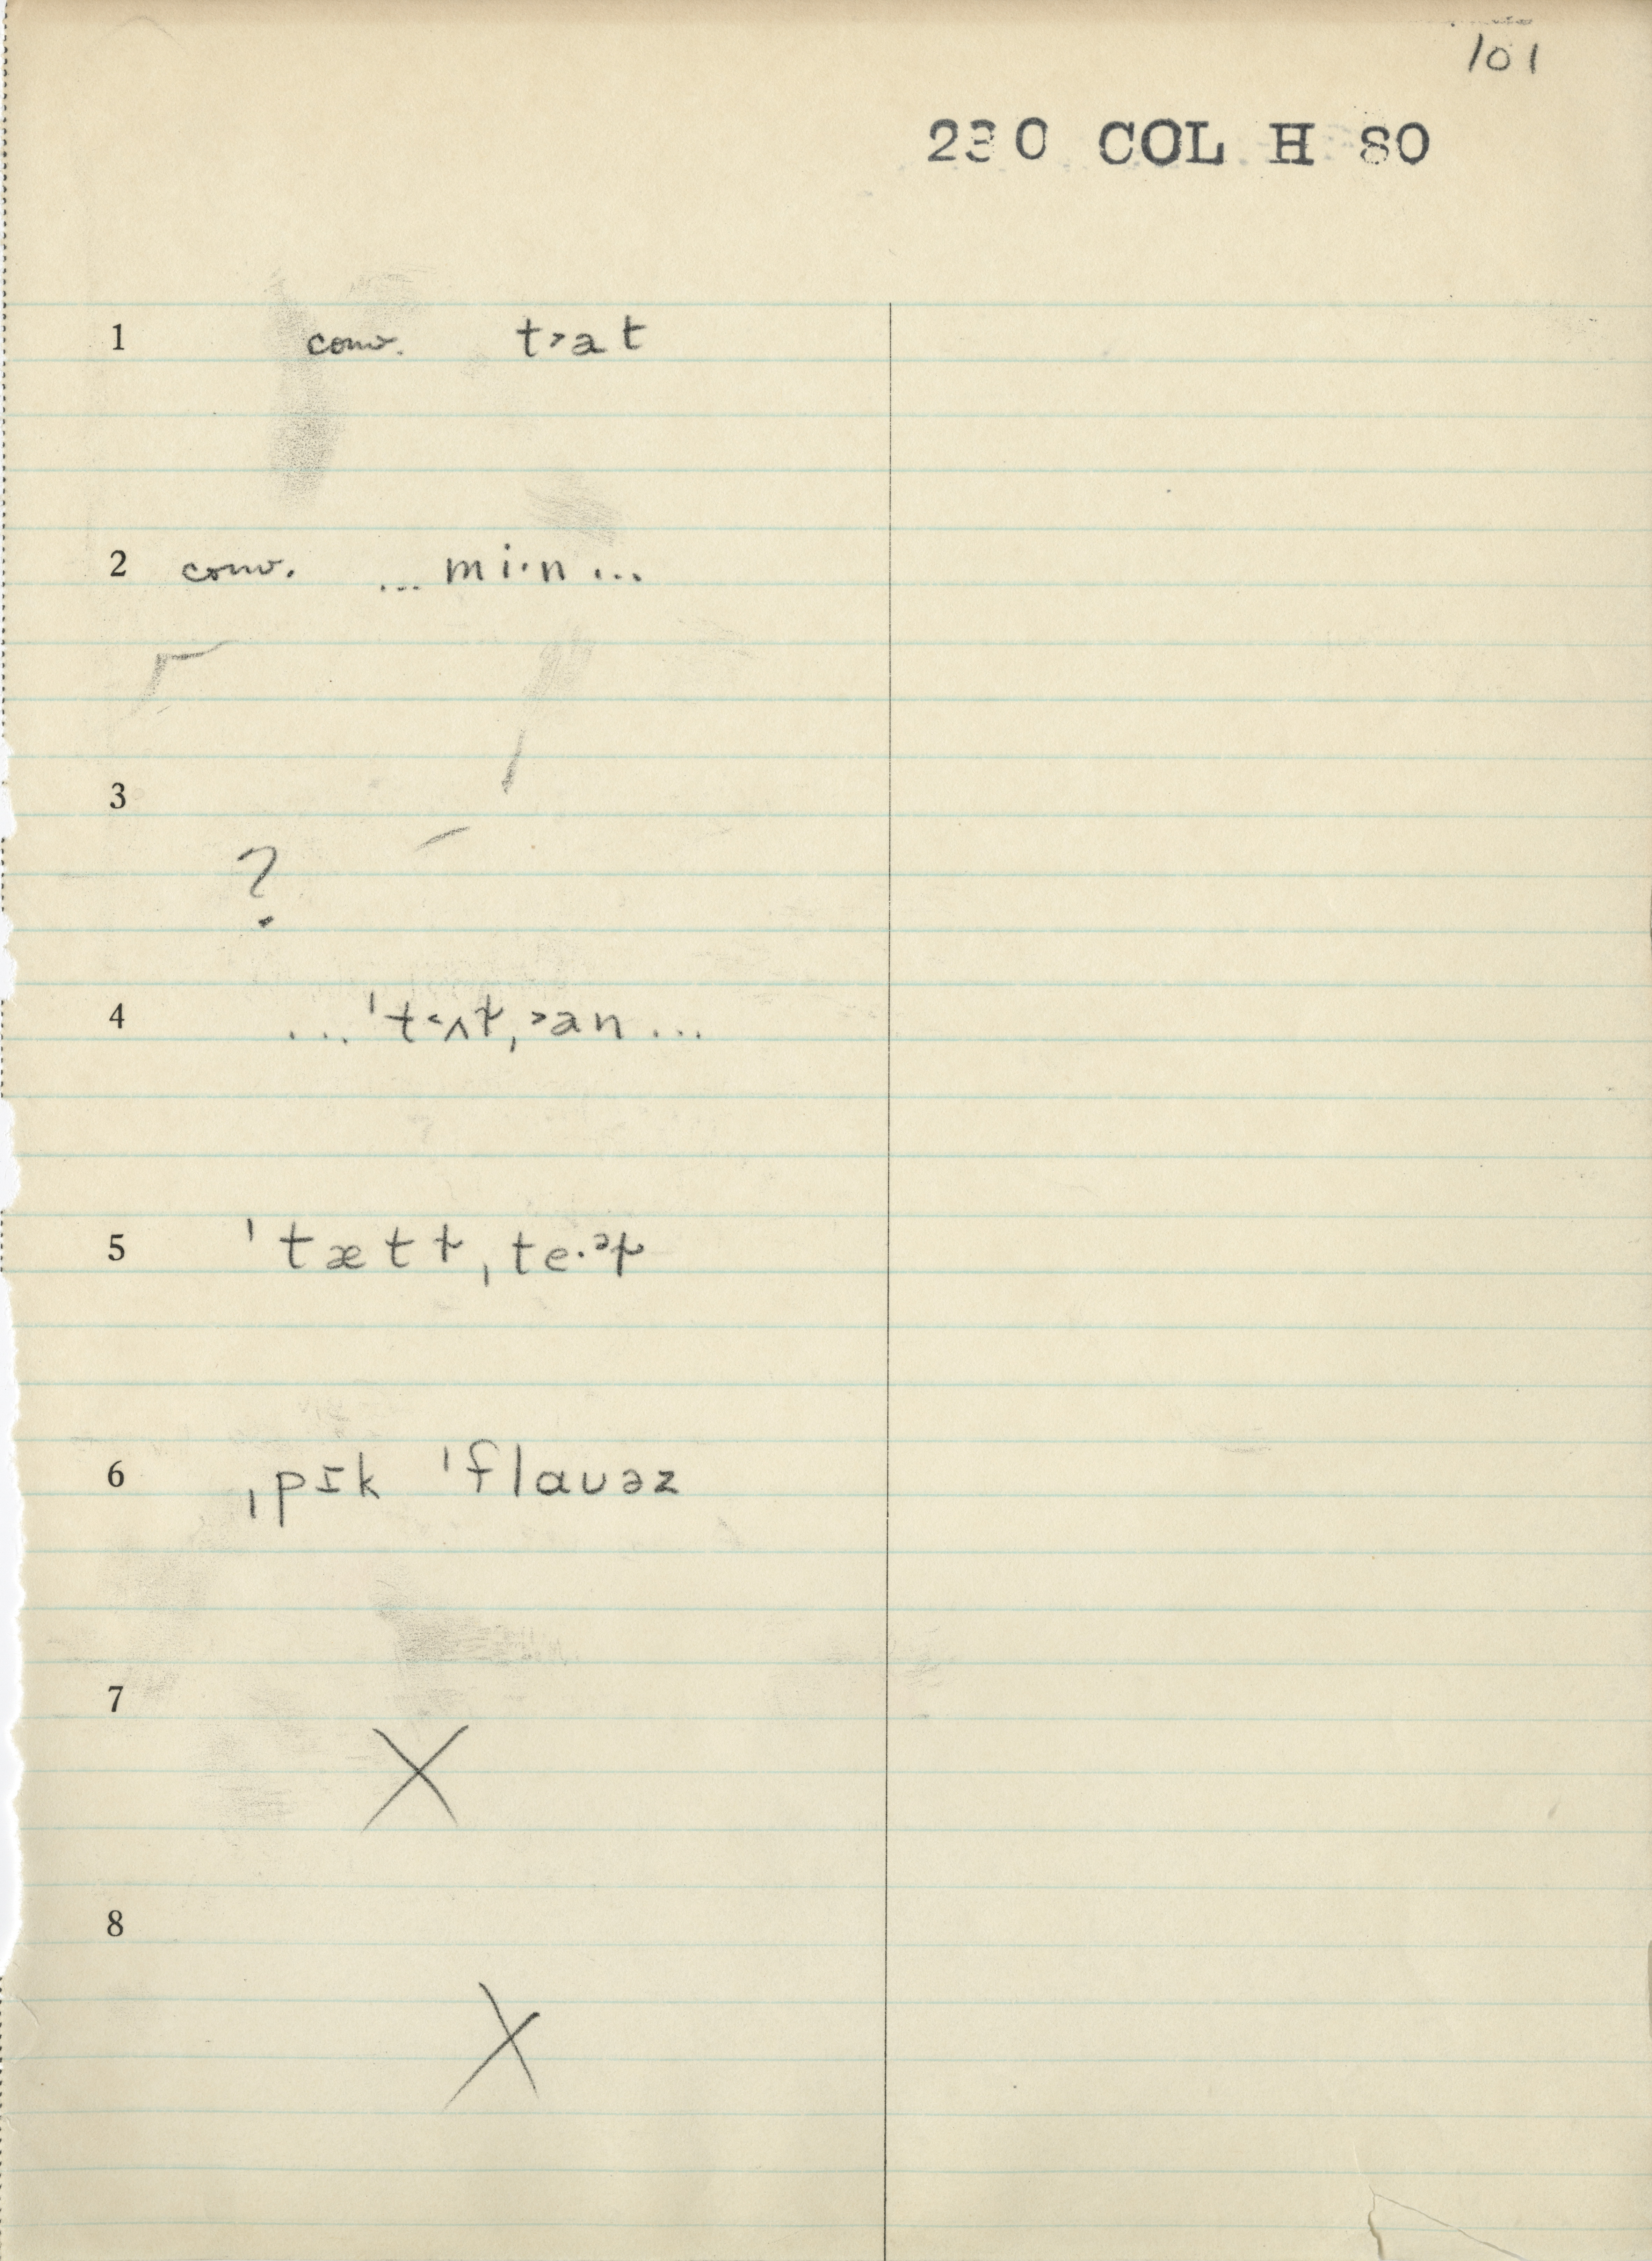 101
230 COL H 80
1 conv. t˃at
2 conv. ... mi·n ...
3
?
4 ... ˈt˂ʌƚˌ˃an ...
5 ˈtættƚˌte·ᵊƚ
6 ˌpɪk ˈflauəz
7
X
8
X